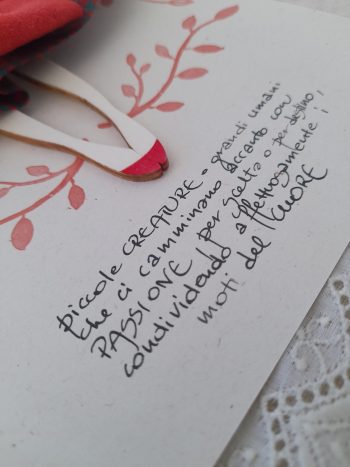 piccole CREATURE o grandi umani
che ci camminano accanto con
PASSIONE, per scelta o per destino,
condividendo affettuosamente i
moti del CUORE